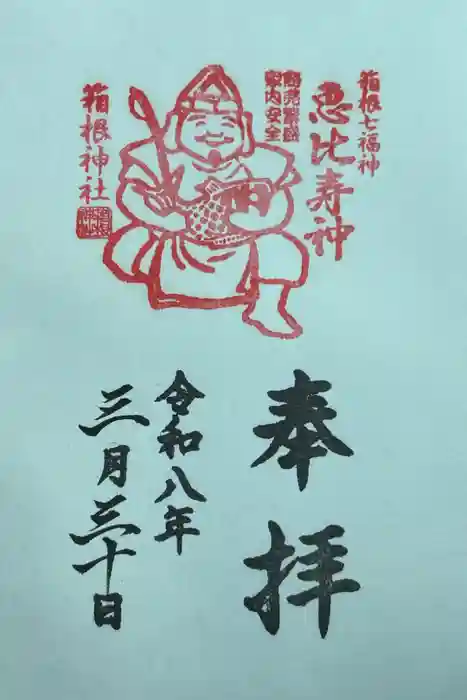 箱根七福神
恵比寿神
商売繁盛
家内安全
箱根神社
奉拝
令和八年
三月三十日